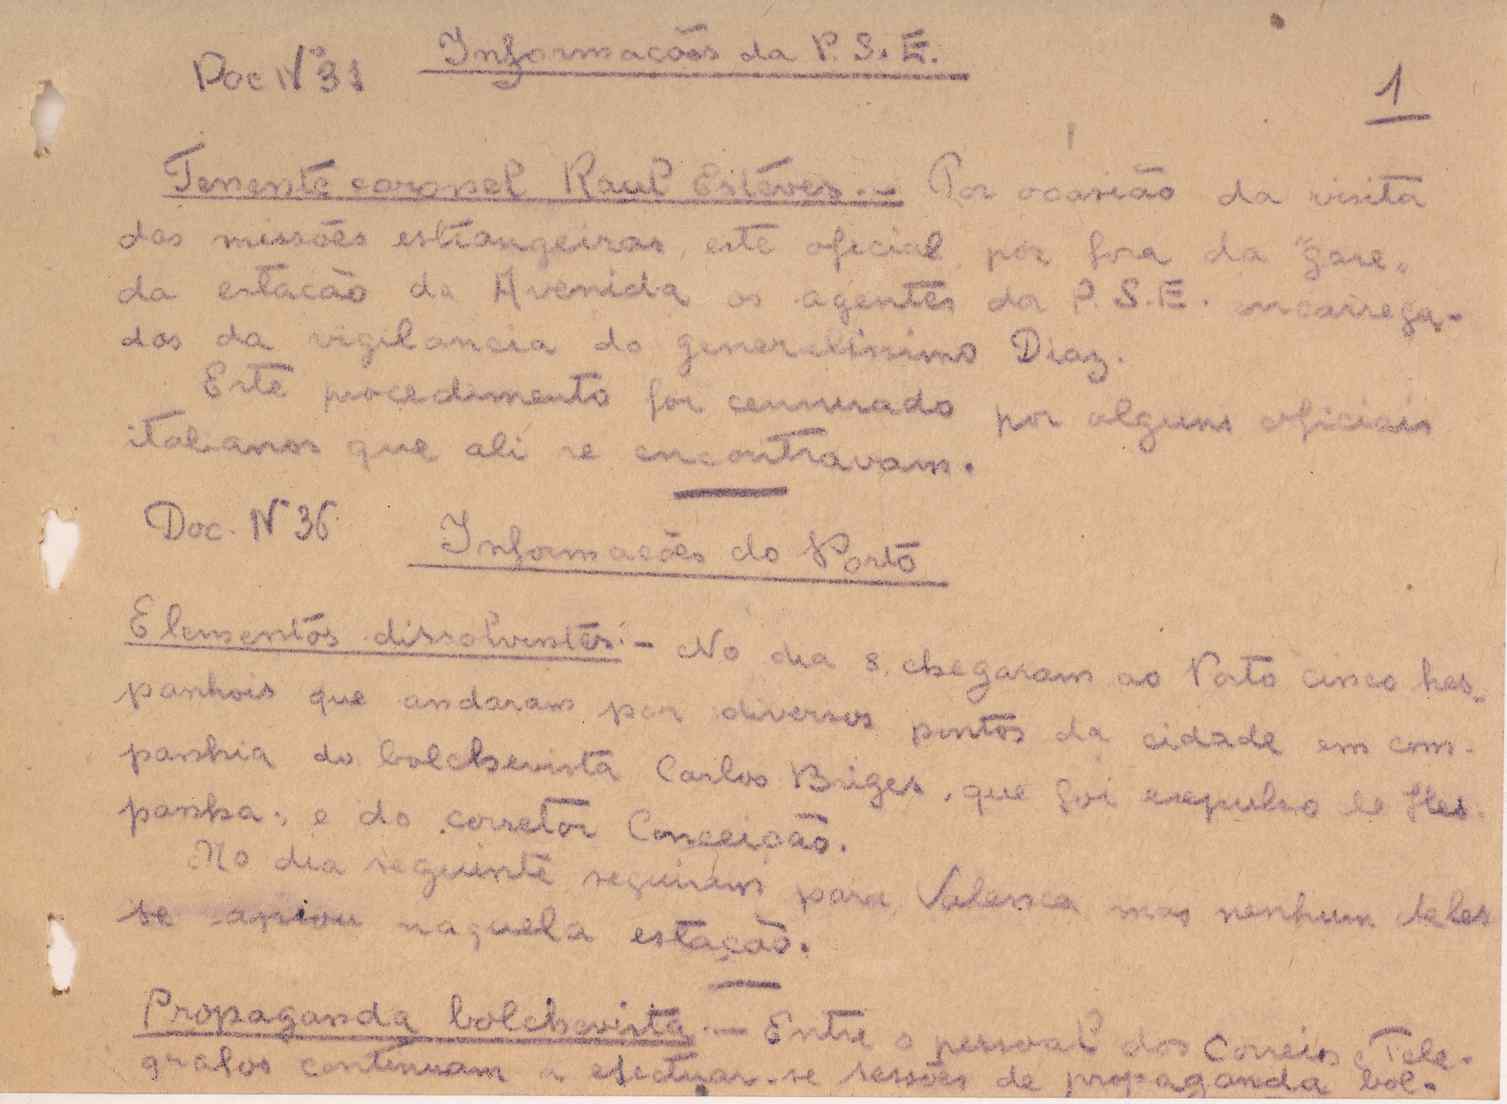 Doc Nº 31 Informações da P. S. E.
1
Tenente coronel Raul Estéves. — Por ocasião da visita
das missões estrangeiras, este oficial, pôz fora da "gare"
da estação da Avenida os agentes da P. S. E. encarrega-
dos da vigilancia do generalissimo Diaz.
Este procedimento foi censurado por alguns oficiais
italianos que ali se encontravam.
Doc. Nº 36 Informações do Porto
Elementos dissolventes: — No dia 8, chegaram ao Porto cinco hes-
panhois que andaram por diversos pontos da cidade em com-
panhia do bolchevista Carlos Briges, que foi expulso de Hes-
panha, e do corretor Conceição.
No dia seguinte seguiram para Valença mas nenhum deles
se apeiou naquela estação.
Propaganda bolchevista. — Entre o pessoal dos Correios e Tele-
grafos continuam a efectuar-se sessões de propaganda bol-